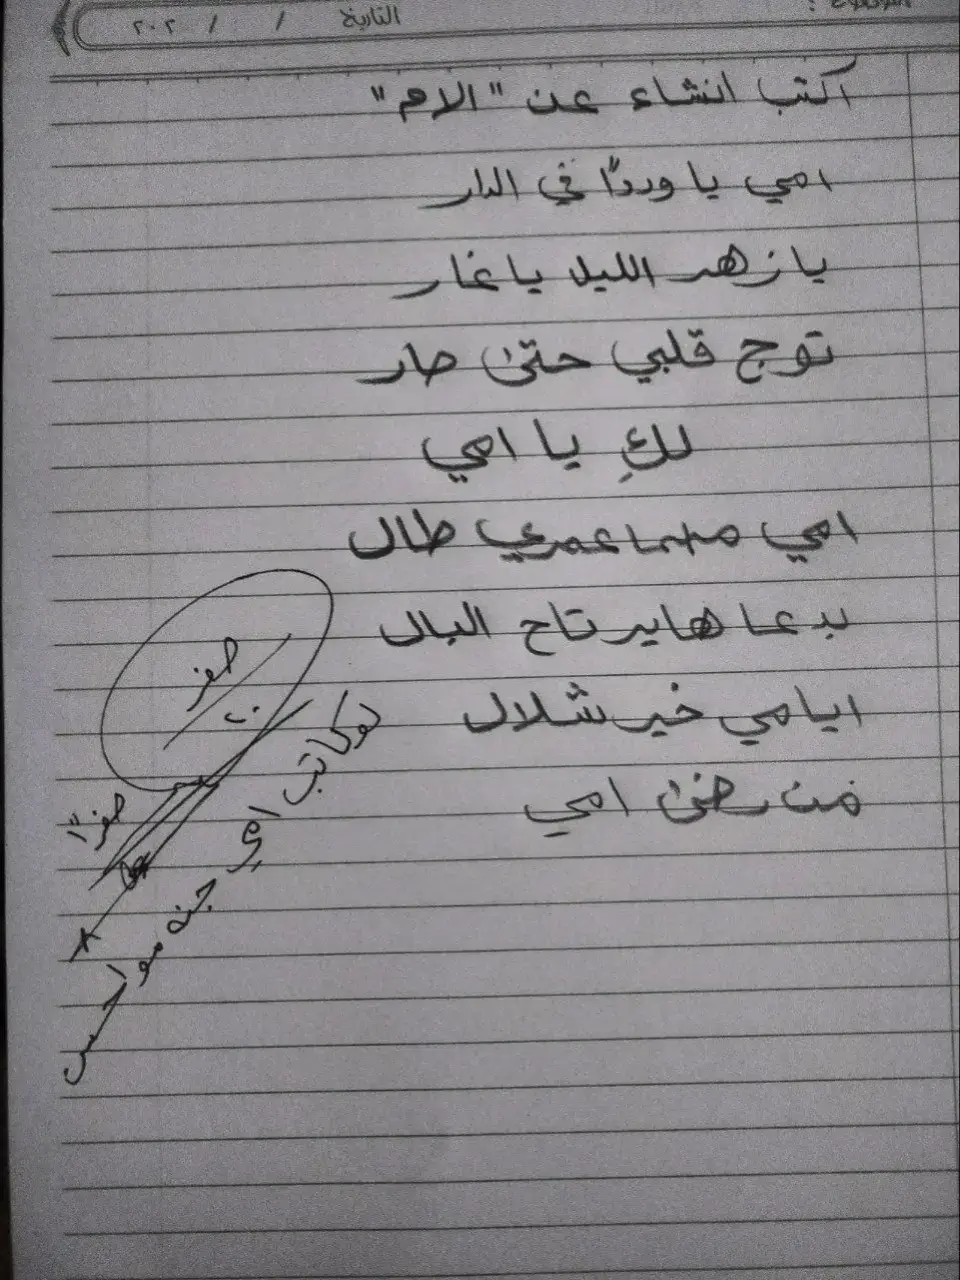 التاريخ / / ٢٠٢
اكتب انشاء عن "الام"
امي يا وردًا في الدار
يا زهر الليل يا غار
توج قلبي حتىٰ صار
لكِ يا امي
امي مهما عمري طال
بدعاها يرتاح البال
ايامي خير شلال
من رضىٰ امي
صفر
صفر
لو كاتب أي جنه مو احسن